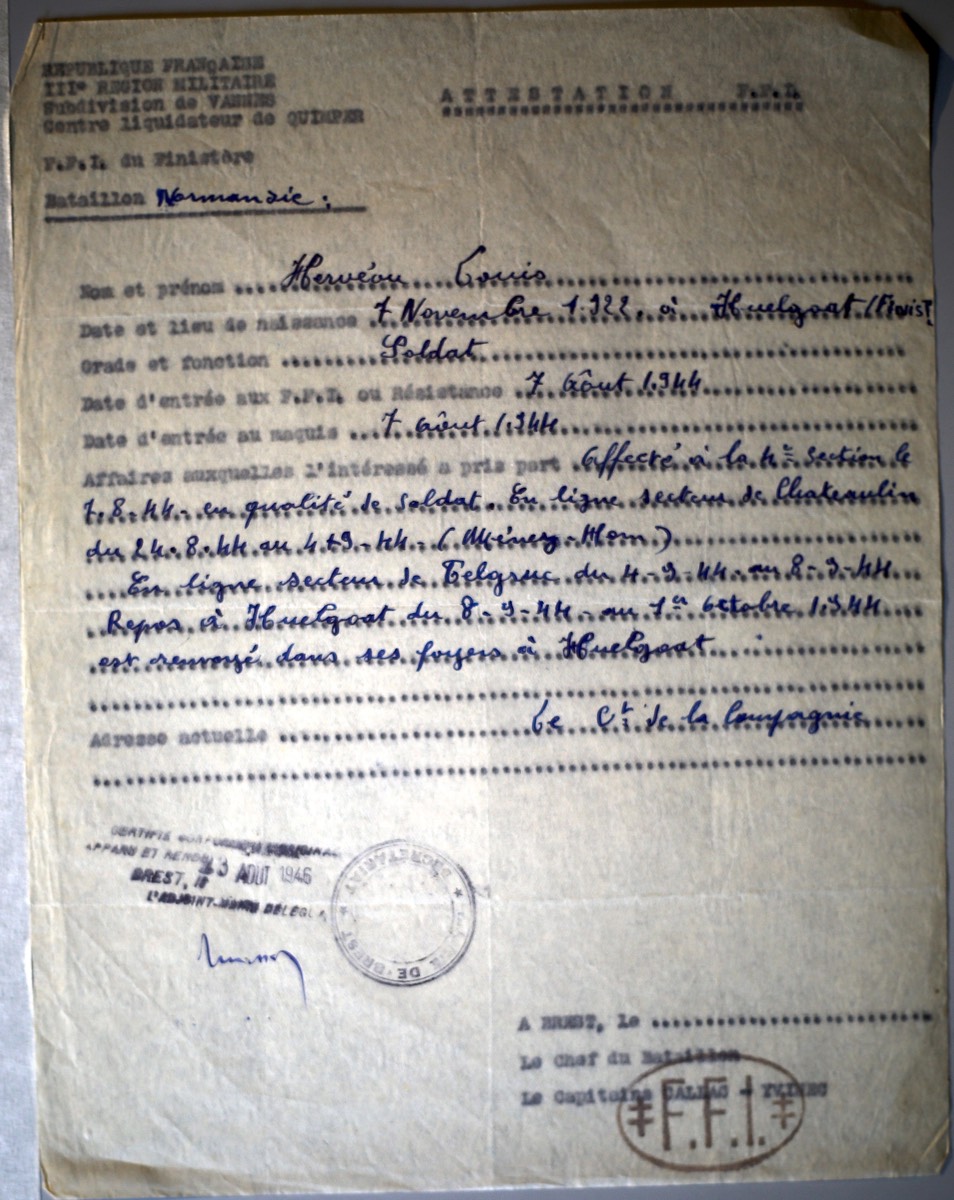 REPUBLIQUE FRANÇAISE
IIIe REGION MILITAIRE
Subdivision de VANNES
Centre liquidateur de QUIMPER
ATTESTATION F.F.I.
F.F.I. du Finistère
Bataillon Normandie :
Nom et prénom Hervéou Louis
Date et lieu de naissance 7 Novembre 1.922. à Huelgoat (Finist
Grade et fonction Soldat
Date d'entrée aux F.F.I. ou Résistance 7 Aôut 1.944
Date d'entrée au maquis 7 Aôut 1.944
Affaires auxquelles l'intéressé a pris part Affecté à la 4e Section le
7.8.44. en qualité de Soldat. En ligne secteur de Chateaulin
du 24.8.44 au 4.9.44. (Ménez-Hom)
En ligne secteur de Telgruc du 4-9-44. au 8-9-44
Repos à Huelgoat du 8-9-44. au 1er Octobre 1.944
est renvoyé dans ses foyers à Huelgoat
Adresse actuelle Le Ct de la Compagnie
CERTIFIE CONFORME
APPARU ET RENDU
3 AOUT 1946
BREST, le
L'ADJOINT-MAIRE DELEGUE
SECRETARIAT
DE BREST
A BREST, le
Le Chef du Bataillon
Le Capitaine
F.F.I.